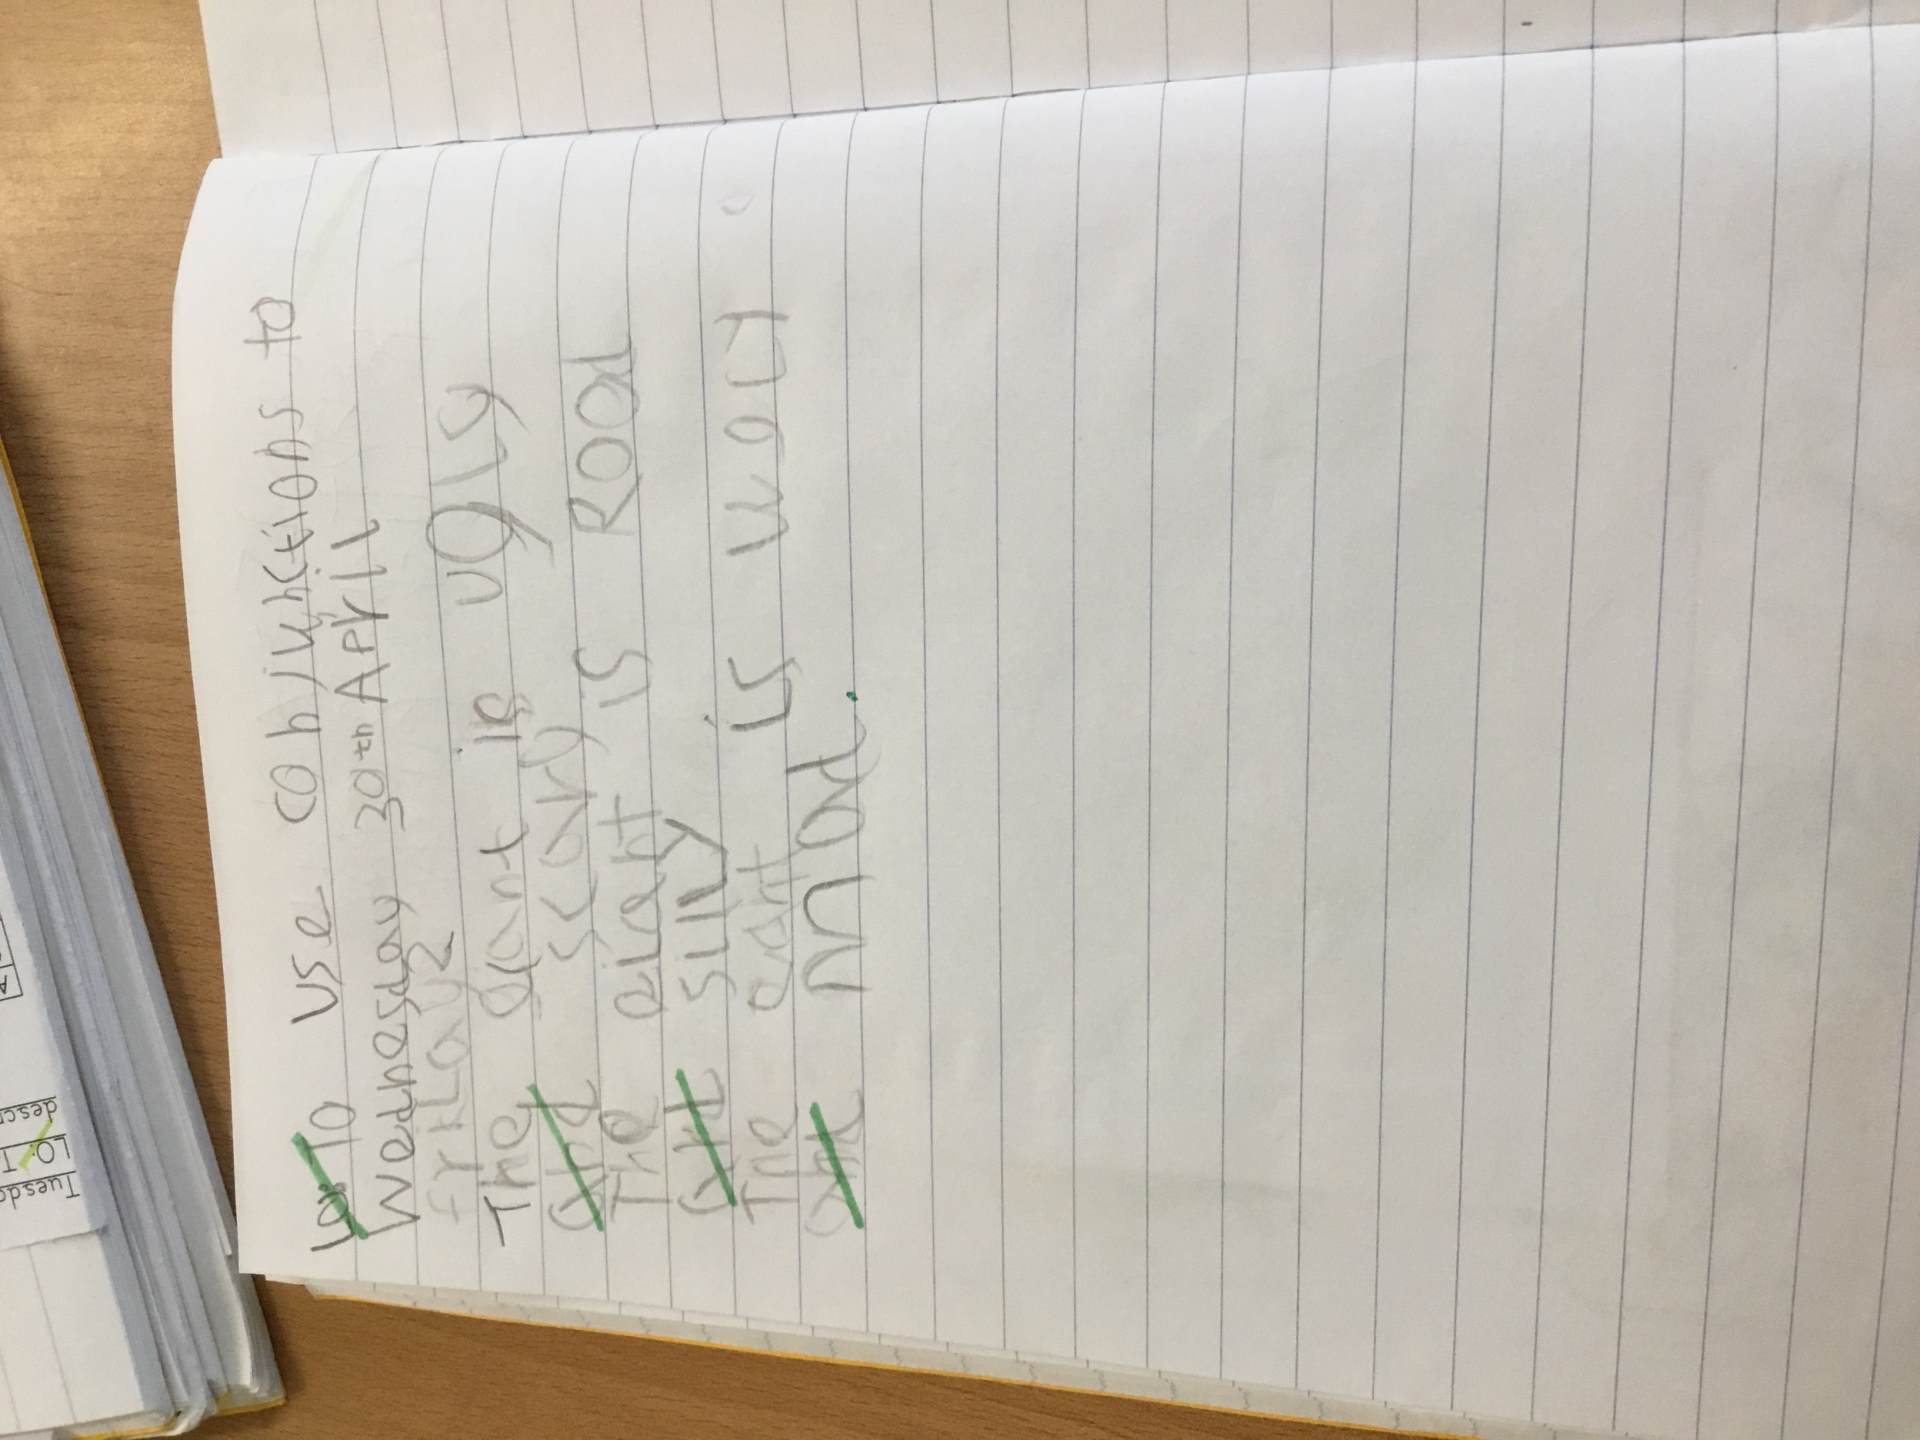 L.O: To use conjunctions to
Wednesday 30th April
The giant is ugly
and scary
The giant is Rood
and silly
The is
and mad.
Tuesda
LO: T
descr
A